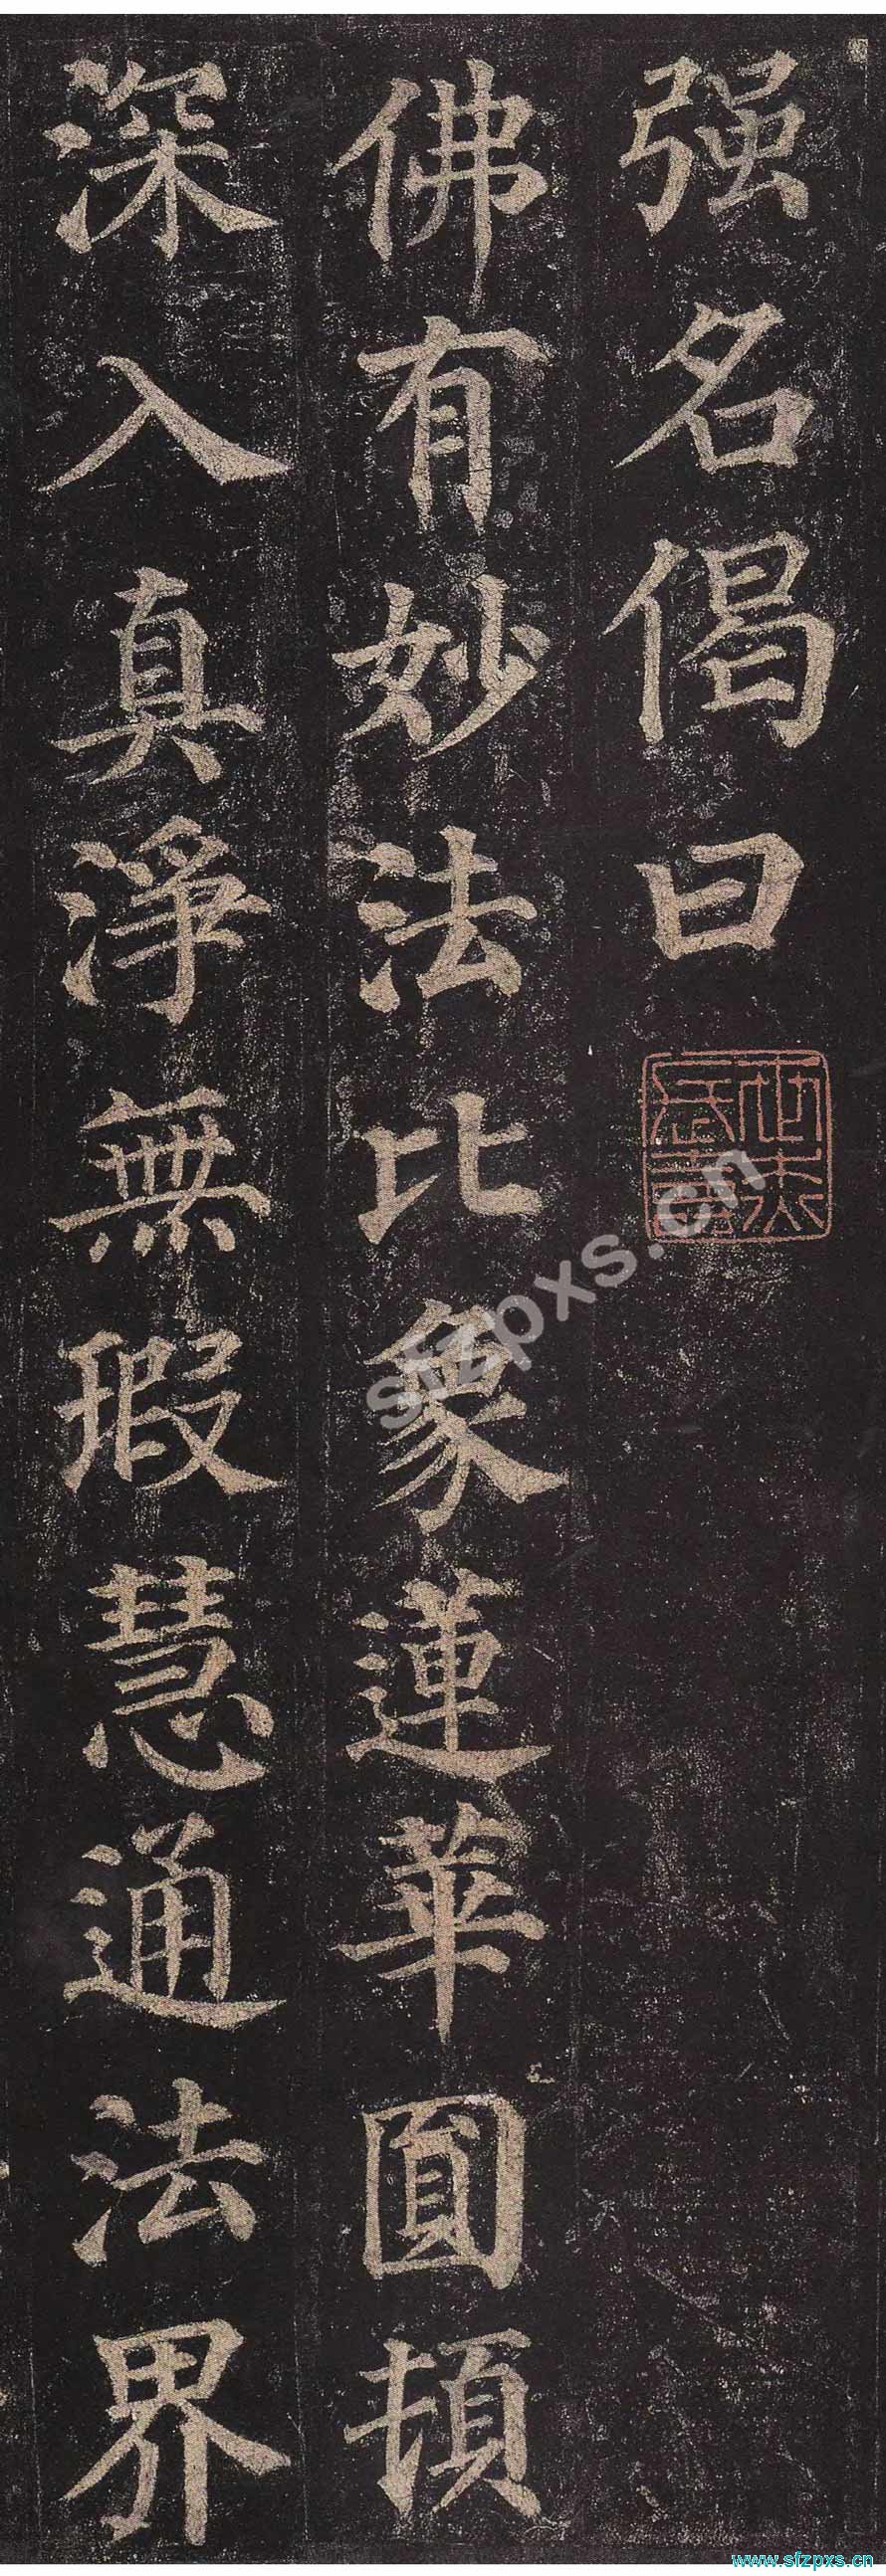 强名偈曰
佛有妙法比象蓮華圓頓
深入真淨無瑕慧通法界
sfzpxs.cn
www.sfzpxs.cn